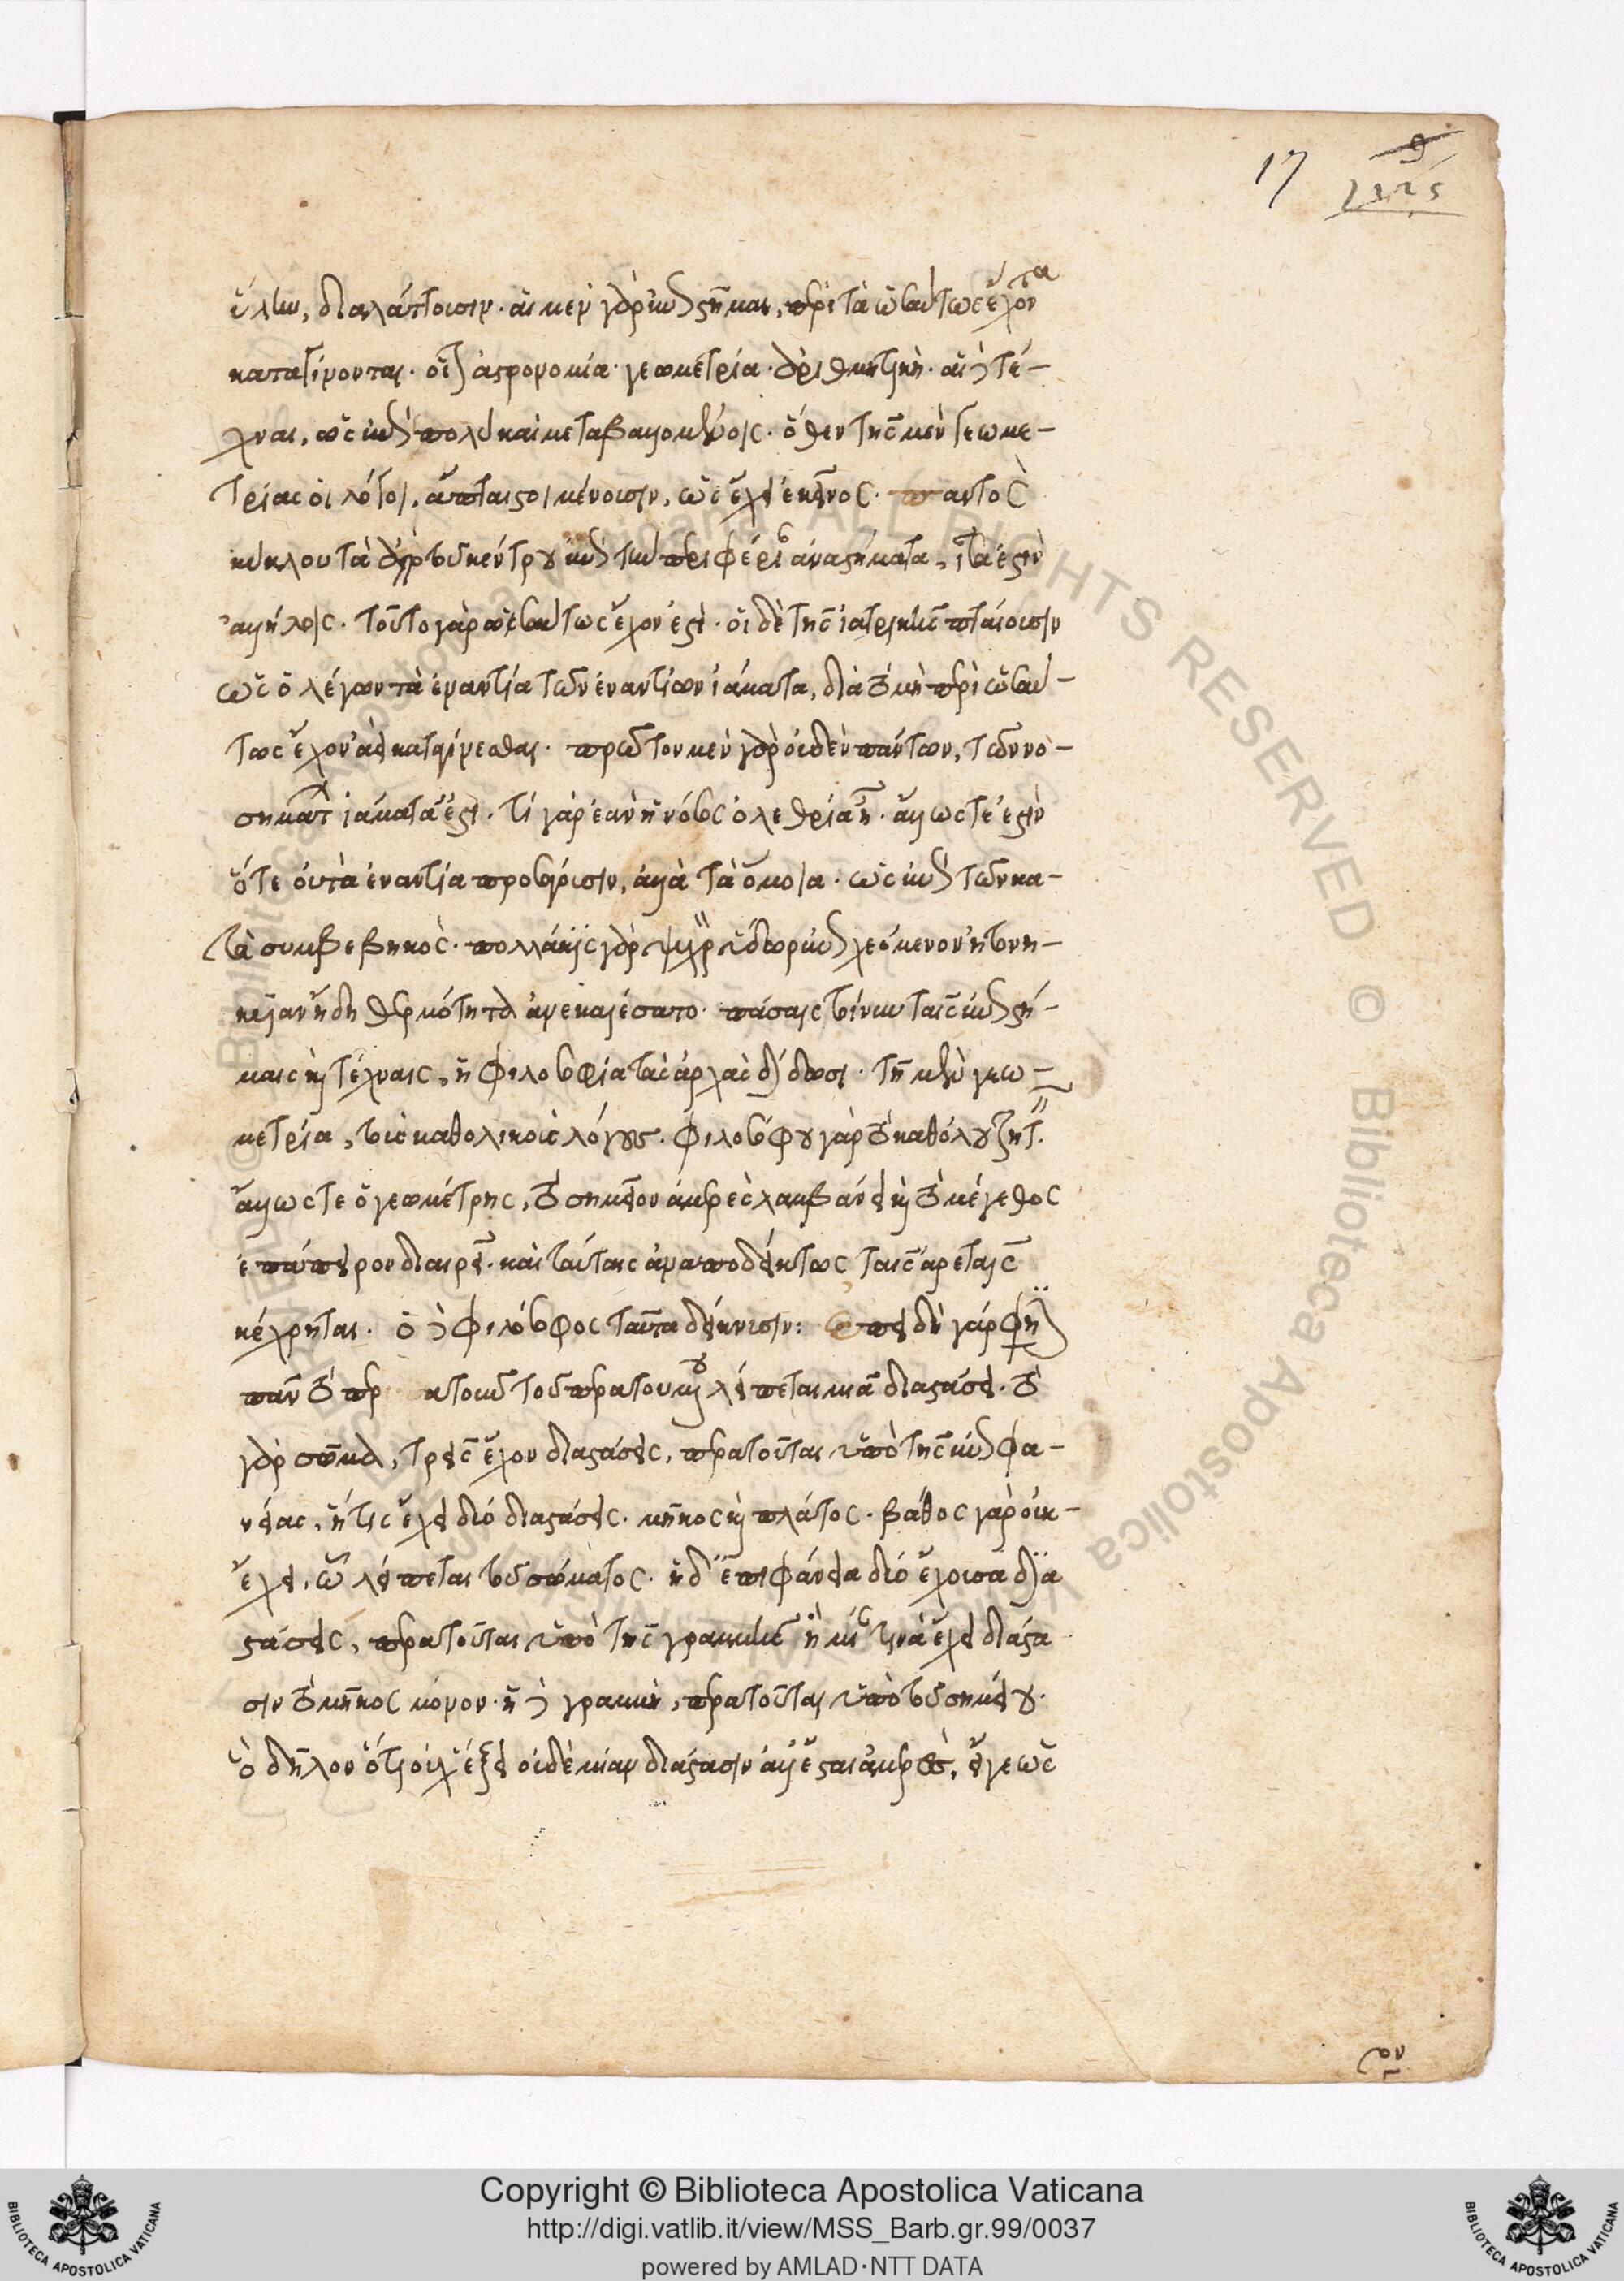 17 9
2325
ὕλην, διαλάττουσιν. αἱ μὲν γὰρ ἐπιστῆμαι, περὶ τὰ ὡσαύτως ἔχοντα
καταγίνονται. οἷον ἀστρονομία· γεωμετρία· ἀριθμητική. αἱ δὲ τέ-
χναι, ὡς ἐπὶ πολὺ καὶ μεταβαλλομένοις. ὅθεν τῆς μὲν γεωμε-
τρίας οἱ λόγοι, ἄπταιστοι μένουσιν, ὡς ἔχει ἐκεῖνος. παντὸς
κύκλου τὰ ἀπὸ τοῦ κέντρου ἐπὶ τὴν περιφέρειαν ἀναστήματα, ἴσα ἐστὶν
ἀλλήλοις. τοῦτο γὰρ ὡσαύτως ἔχον ἐστί. οἱ δὲ τῆς ἰατρικῆς πταίουσιν
ὡς ὁ λέγων τὰ ἐναντία τῶν ἐναντίων ἰάματα, διὰ τὸ μὴ περὶ ὡσαύ-
τως ἔχον ἀεὶ καταγίνεσθαι. πρῶτον μὲν γὰρ οὐδὲν πάντων, τῶν νο-
σημάτων ἰάματά ἐστι. τί γὰρ ἐὰν ἡ νόσος ὀλεθρία ᾖ. ἄλλως τέ ἐστιν
ὅτε οὐ τὰ ἐναντία προσφέρουσιν, ἀλλὰ τὰ ὅμοια. ὡς ἐπὶ τῶν κα-
τὰ συμβεβηκός. πολλάκις γὰρ ψυχρὸν ὕδωρ ἐπιχεόμενον
ἤδη θερμότητα ἀνεκαλέσατο. πάσαις τοίνυν ταῖς ἐπιστή-
μαις καὶ τέχναις, ἡ φιλοσοφία τὰς ἀρχὰς δίδωσι. τῇ μὲν γεω-
μετρίᾳ, τοὺς καθολικοὺς λόγους. φιλοσόφου γὰρ τὸ καθόλου ζητεῖν.
ἄλλως τε ὁ γεωμέτρης, τὸ σημεῖον ἀμερὲς λαμβάνει καὶ τὸ μέγεθος
ἐπ' ἄπειρον διαιρεῖ. καὶ ταύταις ἀναποδείκτως ταῖς ἀρεταῖς
κέχρηται. ὁ δὲ φιλόσοφος ταῦτα δείκνυσιν: ἐπειδὴ γάρ φησι
πᾶν τὸ περατοῦν τοῦ περατουμένου λείπεται μιᾷ διαστάσει. τὸ
γὰρ σῶμα, τρεῖς ἔχον διαστάσεις, περατοῦται ὑπὸ τῆς ἐπιφα-
νείας, ἥτις ἔχει δύο διαστάσεις. μῆκος καὶ πλάτος. βάθος γὰρ οὐκ
ἔχει, ᾧ λείπεται τοῦ σώματος. ἡ δ' ἐπιφάνεια δύο ἔχουσα δια
στάσεις, περατοῦται ὑπὸ τῆς γραμμῆς ἣ μίαν τινὰ ἔχει διάστα
σιν τὸ μῆκος μόνον. ἡ δὲ γραμμὴ, περατοῦται ὑπὸ τοῦ σημείου.
ὃ δῆλον ὅτι οὐχ ἕξει οὐδεμίαν διάστασιν ἀλλ' ἔσται ἀμερές, εἴγε ὡς
Copyright © Biblioteca Apostolica Vaticana
http://digi.vatlib.it/view/MSS_Barb.gr.99/0037
powered by AMLAD·NTT DATA